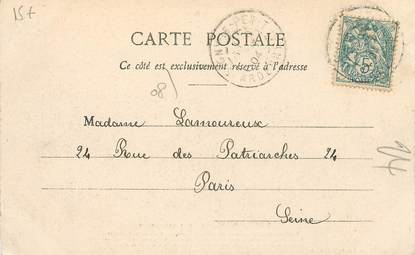 15+
CARTE POSTALE
Ce côté est exclusivement réservé à l'adresse
08
Madame Lamoureux
24 Rue des Patriarches 24
Paris
Seine
24
5